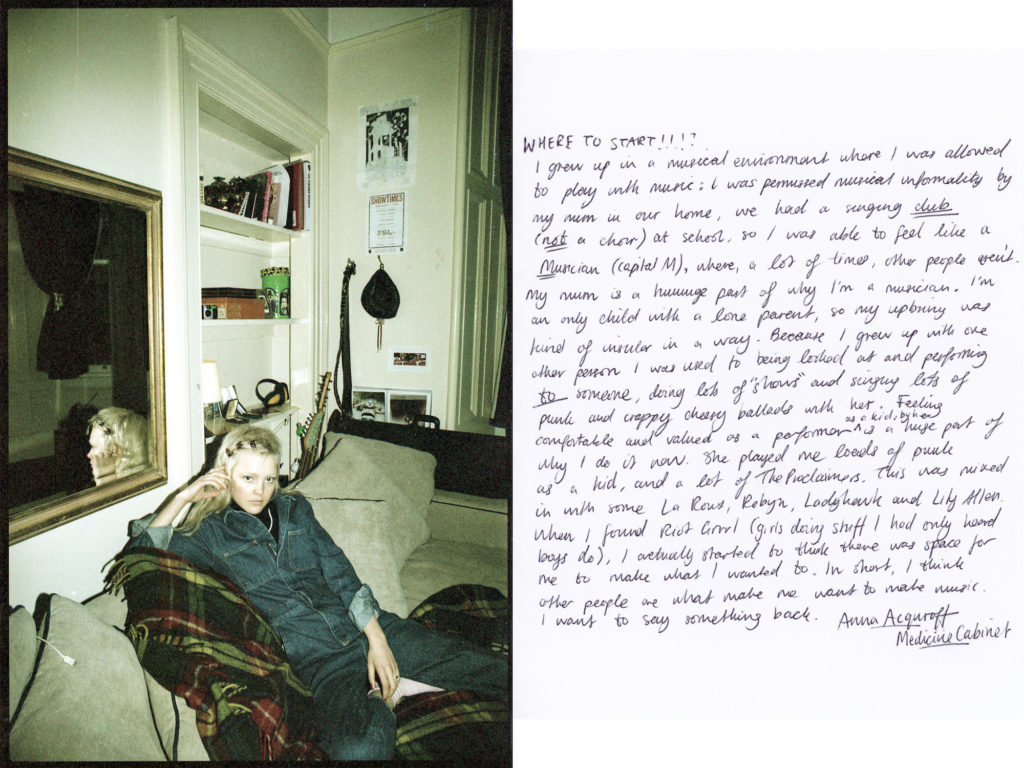 SHOWTIMES
WHERE TO START!!!?
I grew up in a musical environment where I was allowed
to play with music: I was permissed musical informality by
my mum in our home, we had a singing club
(not a choir) at school, so I was able to feel like a
Musician (capital M), where, a lot of times, other people weren't.
My mum is a huuuge part of why I'm a musician. I'm
an only child with a lone parent, so my upbring was
kind of insular in a way. Because I grew up with one
other person I was used to being looked at and performing
to someone, doing lots of "shows" and singing lots of
punk and crappy cheesy ballads with her. Feeling
as a kid, by her
comfortable and valued as a performer ^ is a huge part of
why I do it now. She played me loads of punk
as a kid, and a lot of The Proclaimers. This was mixed
in with some La Roux, Robyn, Ladyhawk and Lily Allen.
When I found Riot Grrrl (girls doing stuff I had only heard
boys do), I actually started to think there was space for
me to make what I wanted to. In short, I think
other people are what make me want to make music.
I want to say something back. Anna Acquroff
Medicine Cabinet